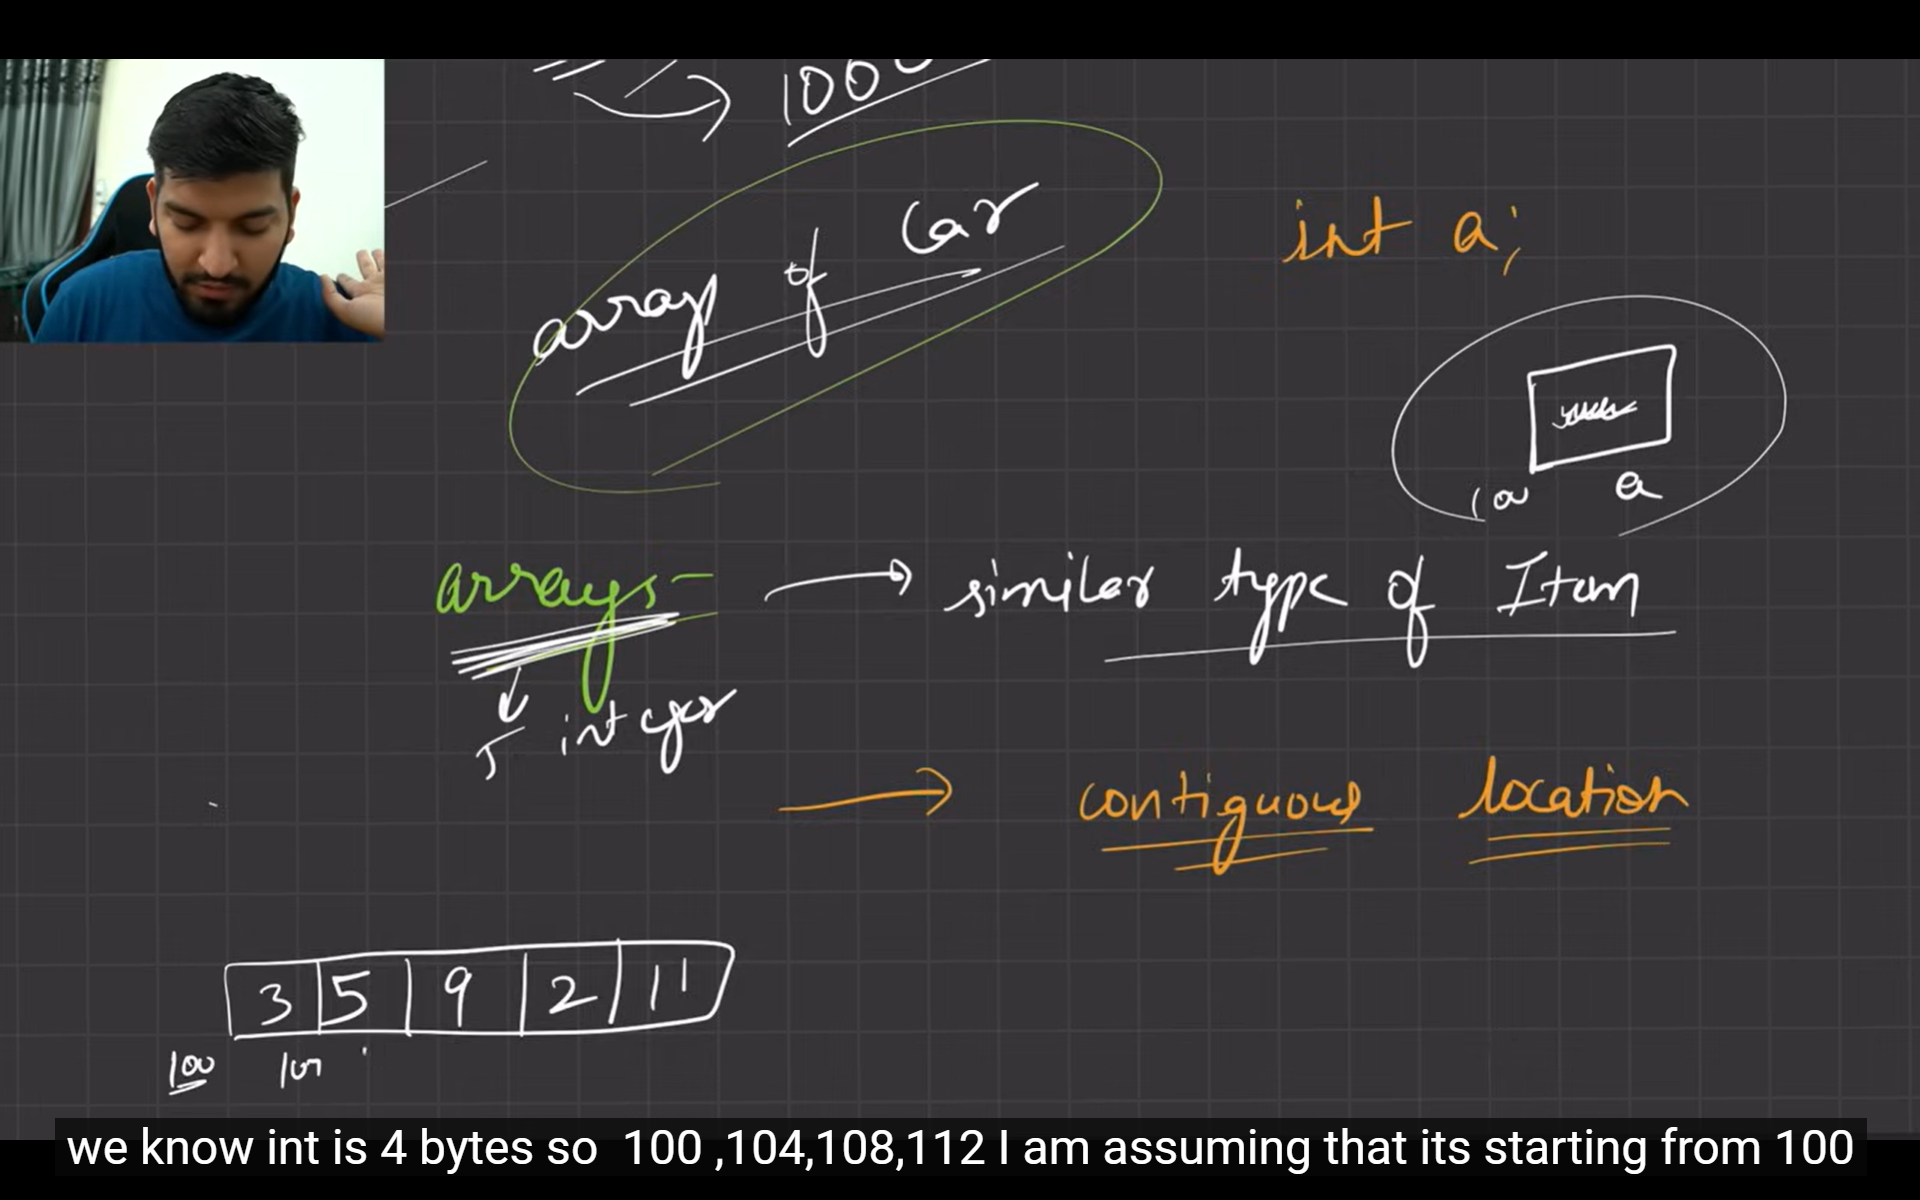 1000
array of Car
int a;
100 a
arrays- → similar type of Item
↓
5 integer
→ contiguous location
3 5 9 2 11
100 104
we know int is 4 bytes so 100 ,104,108,112 I am assuming that its starting from 100